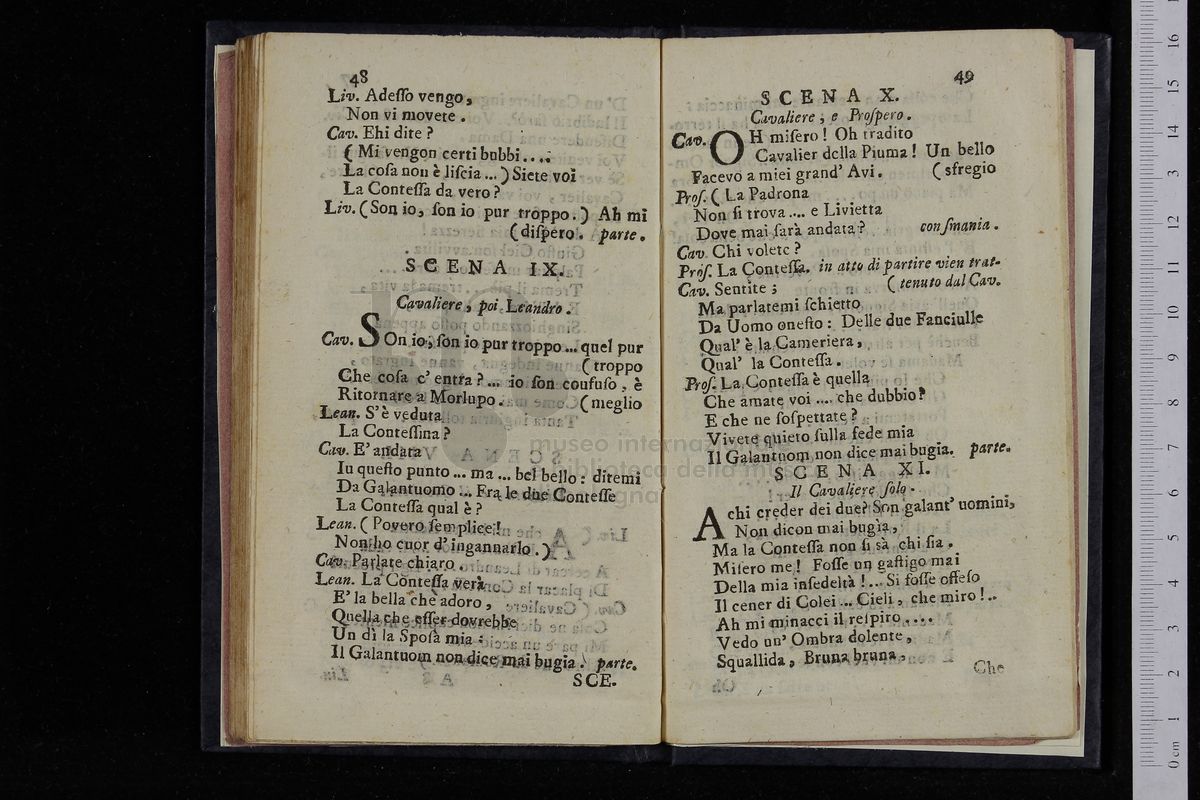 48
Liv. Adeſſo vengo,
Non vi movete.
Cav. Ehi dite?
( Mi vengon certi bubbi....
La coſa non è liſcia...) Siete voi
La Conteſſa da vero?
Liv. (Son io, ſon io pur troppo.) Ah mi
(diſpero. parte.
SCENA IX.
Cavaliere, poi Leandro.
Cav. SOn io, ſon io pur troppo... quel pur
(troppo
Che coſa c' entra?... io ſon confuſo, è
Ritornare a Morlupo. (meglio
Lean. S'è veduta
La Conteſſina?
Cav. E' andata
In queſto punto... ma... bel bello: ditemi
Da Galantuomo... Fra le due Conteſſe
La Conteſſa qual è?
Lean. ( Povero ſemplice!
Non ho cuor d'ingannarlo.)
Cav. Parlate chiaro.
Lean. La Conteſſa vera
E' la bella che adoro,
Quella che eſſer dovrebbe
Un dì la Spoſa mia:
Il Galantuom non dice mai bugia. parte.
SCE.
49
SCENA X.
Cavaliere, e Proſpero.
Cav. OH miſero! Oh tradito
Cavalier della Piuma! Un bello
Facevo a miei grand' Avi. (sfregio
Proſ. ( La Padrona
Non ſi trova.... e Livietta
Dove mai ſarà andata? con ſmania.
Cav. Chi volete?
Proſ. La Conteſſa. in atto di partire vien trat-
Cav. Sentite; ( tenuto dal Cav.
Ma parlatemi ſchietto
Da Uomo oneſto: Delle due Fanciulle
Qual' è la Cameriera,
Qual' la Conteſſa.
Proſ. La Conteſſa è quella
Che amate voi.... che dubbio?
E che ne ſoſpettate?
Vivete quieto ſulla fede mia
Il Galantuom non dice mai bugia. parte.
SCENA XI.
Il Cavaliere ſolo.
A chi creder dei due? Son galant' uomini,
Non dicon mai bugìa,
Ma la Conteſſa non ſi sà chi ſia.
Miſero me! Foſſe un gaſtigo mai
Della mia infedeltà!... Si foſſe offeſo
Il cener di Colei... Cieli, che miro!..
Ah mi minacci il reſpiro....
Vedo un' Ombra dolente,
Squallida, Bruna bruna,
Che
museo internazionale
biblioteca della musica